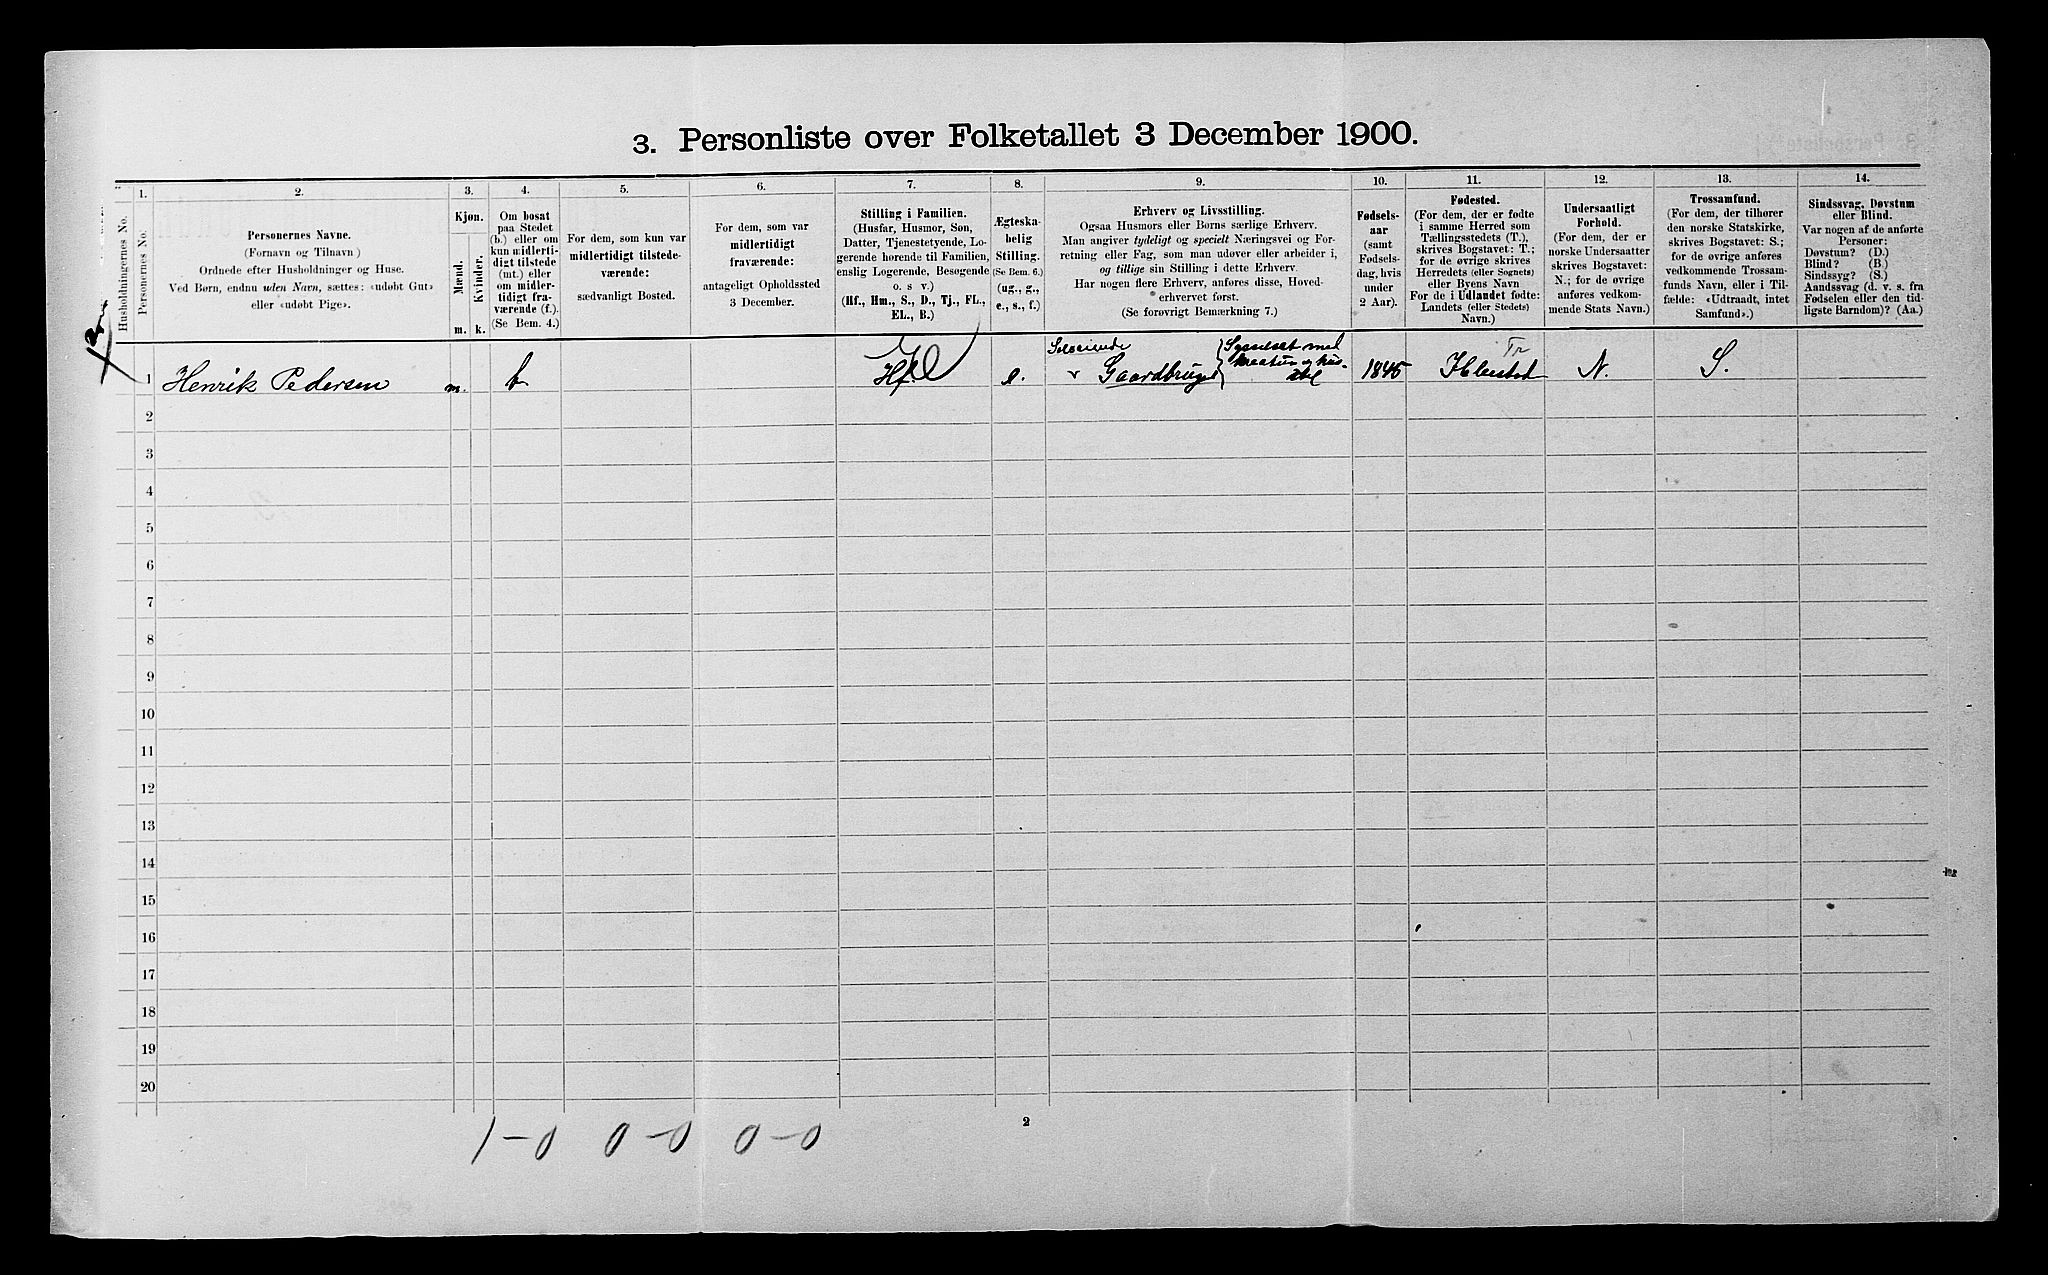 3. Personliste over Folketallet 3 December 1900.
Husholdningernes No.
1.
Personernes No.
2.
Personernes Navne.
(Fornavn og Tilnavn)
Ordnede efter Husholdninger og Huse.
Ved Børn, endnu uden Navn, sættes: «udøbt Gut»
eller «udøbt Pige».
3.
Kjøn.
Mænd.
Kvinder.
m. k.
4.
Om bosat
paa Stedet
(b.) eller om
kun midlerti-
digt tilstede
(mt.) eller
om midler-
tidigt fra-
værende (f.).
(Se Bem. 4.)
5.
For dem, som kun var
midlertidigt tilstede-
værende:
sædvanligt Bosted.
6.
For dem, som var
midlertidigt
fraværende:
antageligt Opholdssted
3 December.
7.
Stilling i Familien.
(Husfar, Husmor, Søn,
Datter, Tjenestetyende, Lo-
gerende hørende til Familien,
enslig Logerende, Besøgende
o. s v.)
(Hf., Hm., S., D., Tj., FL.,
EL., B.)
8.
Ægteska-
belig
Stilling.
(Se Bem. 6.)
(ug., g.,
e., s., f.)
9.
Erhverv og Livsstilling.
Ogsaa Husmors eller Børns særlige Erhverv.
Man angiver tydeligt og specielt Næringsvei og For-
retning eller Fag, som man udøver eller arbeider i,
og tillige sin Stilling i dette Erhverv.
Har nogen flere Erhverv, anføres disse, Hoved-
erhvervet først.
(Se forøvrigt Bemærkning 7.)
10.
Fødsels-
aar
(samt
Fødsels-
dag, hvis
under
2 Aar).
11.
Fødested.
(For dem, der er fødte
i samme Herred som
Tællingsstedets (T.),
skrives Bogstavet: T.;
for de øvrige skrives
Herredets (eller Sognets)
eller Byens Navn
For de i Udlandet fødte:
Landets (eller Stedets)
Navn.)
12.
Undersaatligt
Forhold.
(For dem, der er
norske Undersaatter
skrives Bogstavet:
N.; for de øvrige
anføres vedkom-
mende Stats Navn.)
13.
Trossamfund.
(For dem, der tilhører
den norske Statskirke,
skrives Bogstavet: S.;
for de øvrige anføres
vedkommende Trossam-
funds Navn, eller i Til-
fælde: «Udtraadt, intet
Samfund».)
14.
Sindssvag, Døvstum
eller Blind.
Var nogen af de anførte
Personer:
Døvstum? (D.)
Blind? (B.)
Sindssyg? (S.)
Aandssvag (d. v. s. fra
Fødselen eller den tid-
ligste Barndom)? (Aa.)
1 Henrik Pedersen m. b Hf. e. Selveiende Gaardbruger Sysselsat med 1845 Tr N. S.
2
3
4
5
6
7
8
9
10
11
12
13
14
15
16
17
18
19
20
1-0 0-0 0-0
2